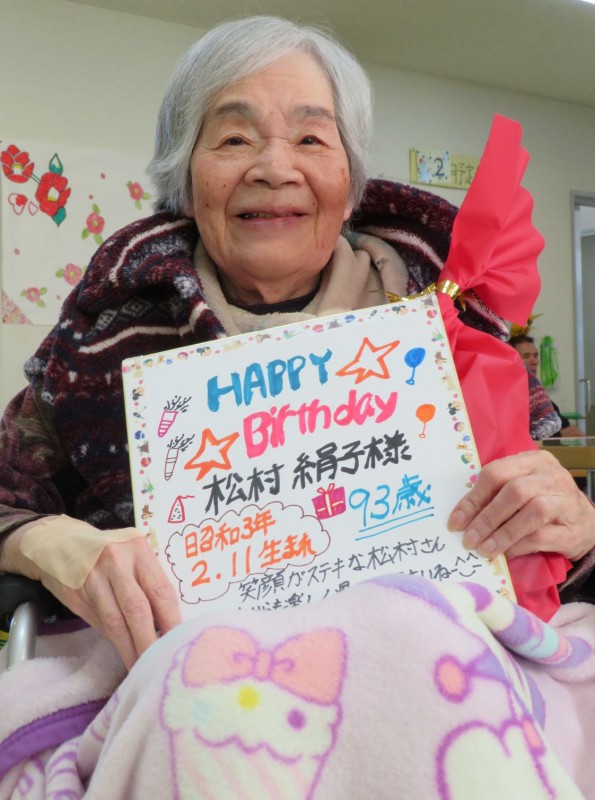 2
HAPPY
Birthday
松村 絹子様
93歳
昭和3年
2.11生まれ
笑顔がステキな松村さん